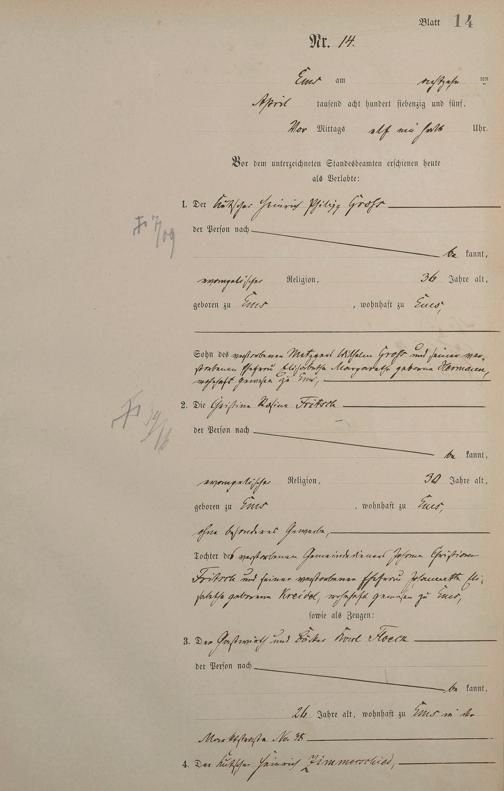 Blatt 14
Nr. 14.
Ems am sechszehn ten
April tausend acht hundert siebenzig und fünf.
Vor Mittags elf ein halb Uhr.
Vor dem unterzeichneten Standesbeamten erschienen heute
als Verlobte:
1. Der Kutscher Heinrich Philipp Grohs
der Person nach
be kannt,
evangelischer Religion, 36 Jahre alt,
geboren zu Ems, wohnhaft zu Ems,
Sohn des verstorbenen Metzgers Wilhelm Grohs und seiner ver-
storbenen Ehefrau Elisabetha Margaretha geborne Hermann,
wohnhaft gewesen zu Ems,
2. Die Christine Rosine Fritsch
der Person nach
be kannt,
evangelische Religion, 30 Jahre alt,
geboren zu Ems, wohnhaft zu Ems,
ohne besonderes Gewerbe,
Tochter des verstorbenen Gemeindedieners Johann Christian
Fritsch und seiner verstorbenen Ehefrau Johannette Eli-
sabethe geborene Kreidel, wohnhaft gewesen zu Ems,
sowie als Zeugen:
3. Der Gastwirth und Bäcker Karl
der Person nach
be kannt,
26 Jahre alt, wohnhaft zu Ems in der
Marktstraße No
4. Der Kutscher Heinrich Zimmerschied,